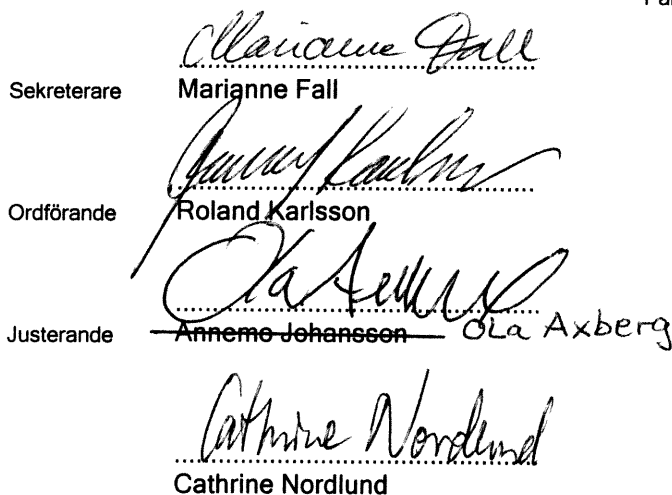 Marianne Fall
Sekreterare Marianne Fall
Ordförande Roland Karlsson
Ola Axberg
Justerande Annemo Johansson Ola Axberg
Cathrine Nordlund
Cathrine Nordlund